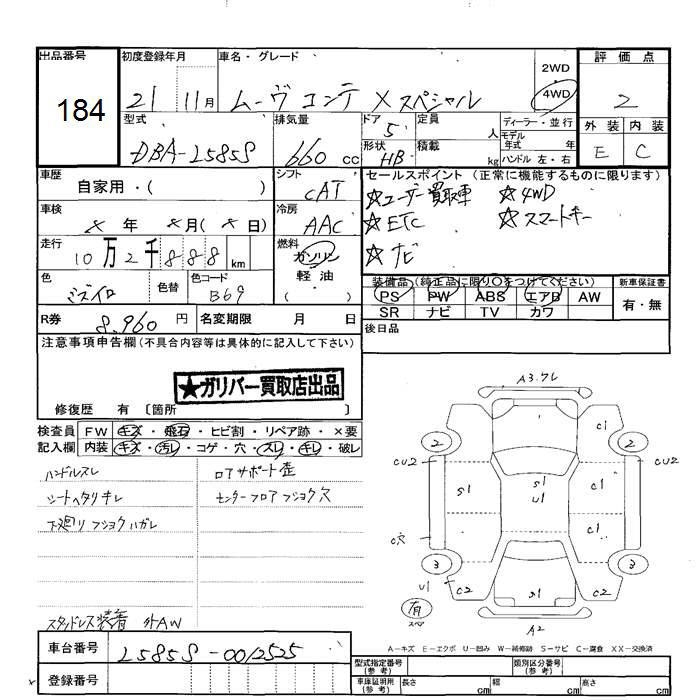 出品番号 初度登録年月 車名・グレード 2WD 評価点
184 21 11月 ムーヴ コンテ Xスペシャル 4WD 2
型式 排気量 ドア 5 定員 人 ディーラー・並行 外装 内装
DBA-L585S 660 cc 形状 HB 積載 kg モデル年式 年 E C
ハンドル 左・右
車歴 自家用・( ) シフト CAT セールスポイント (正常に機能するものに限ります)
☆ユーザー買取車 ☆4WD
車検 X 年 X月(X 日) 冷房 AAC ☆ETC ☆スマートキー
走行 10万2千888km 燃料 ガソリン ☆ナビ
軽油
( )
色 ミズイロ 色替 色コード B69
装備品(純正品に限り○をつけてください) 新車保証書
PS PW ABS エアB AW 有・無
SR ナビ TV カワ
R券 8,960円 名変期限 月 日 後日品
注意事項申告欄(不具合内容等は具体的に記入して下さい)
★ガリバー買取店出品
修復歴 有 〔箇所 〕
検査員 FW キズ・飛石・ヒビ割・リペア跡・×要
記入欄 内装 キズ・汚レ・コゲ・穴・スレ・キレ・破レ
ハンドルスレ ロアサポート歪
シートヘタリキレ センターフロアフショク穴
下廻りフショクハガレ
スタッドレス装着 外AW
A3.ワレ
C1
2 2
CU2 CU2
S1 S1 U1 C1
C穴 C1
3 3
U1 C2 S1 C2
有 スペア
A2
A-キズ E-エクボ U-凹み W-補修跡 S-サビ C-腐食 XX-交換済
車台番号 L585S-0012525
登録番号
型式指定番号(参考) 類別区分番号(参考)
車庫証明用(参考) 長さ cm 幅 cm 高さ cm